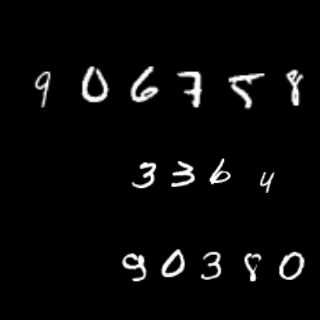 906758
3364
90380